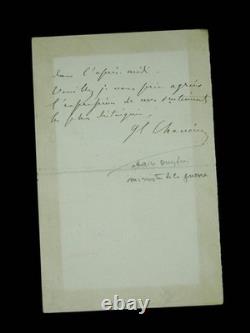 dans l'après-midi.
Veuillez je vous prie agréer
l'expression de mes sentiments
les plus distingués.
Gl Chanoine
ministre de la guerre